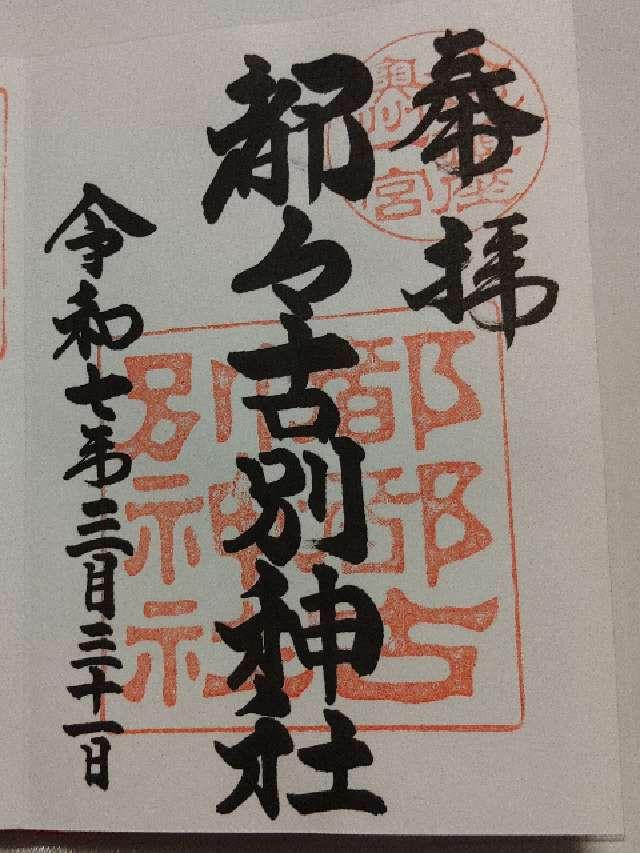 奉拝
都々古別神社
令和七年三月三十一日
奥州一宮
都都古別神社